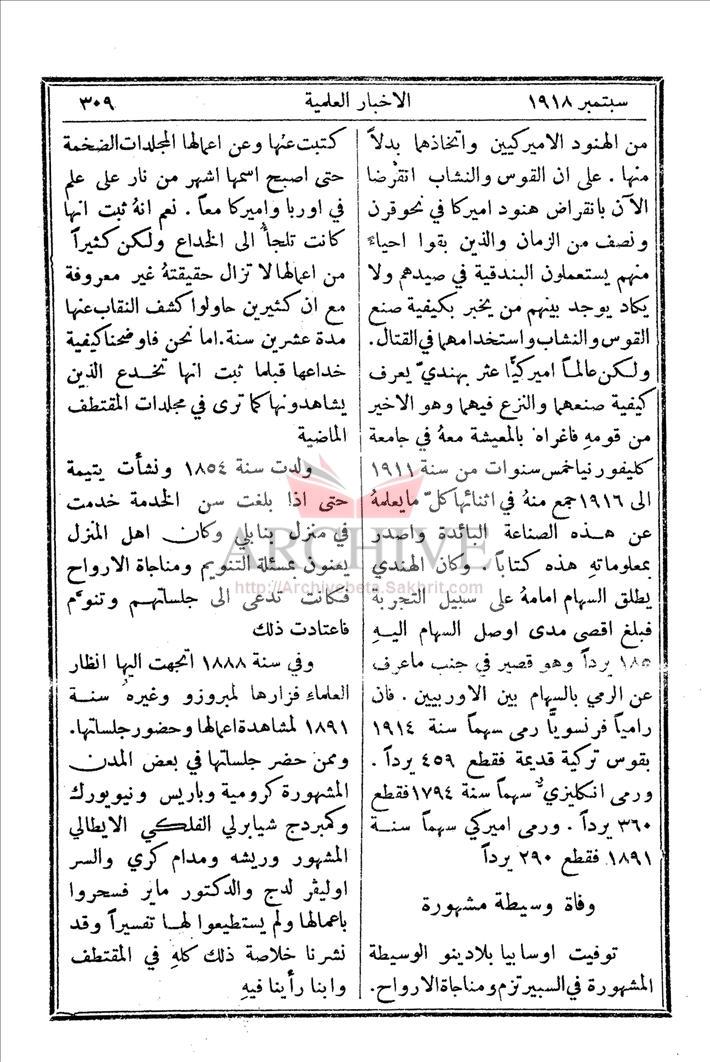 سبتمبر ١٩١٨
الاخبار العلمية
٣٠٩
من الهنود الاميركيين واتخاذهما بدلاً
منها . على ان القوس والنشاب انقرضا
الآن بانقراض هنود اميركا في نحو قرن
ونصف من الزمان والذين بقوا احياءً
منهم يستعملون البندقية في صيدهم ولا
يكاد يوجد بينهم من يخبر بكيفية صنع
القوس والنشاب واستخدامهما في القتال .
ولكن عالماً اميركيًّا عثر بهنديّ يعرف
كيفية صنعهما والنزع فيهما وهو الاخير
من قومهِ فاغراهُ بالمعيشة معهُ في جامعة
كليفورنيا خمس سنوات من سنة ١٩١١
الى ١٩١٦ جمع منهُ في اثنائها كلّ ما يعلمهُ
عن هذه الصناعة البائدة واصدر
بمعلوماتهِ هذه كتاباً . وكان الهندي
يطلق السهام امامهُ على سبيل التجربة
فبلغ اقصى مدى اوصل السهام اليهِ
١٨٥ يرداً وهو قصير في جنب ما عرف
عن الرمي بالسهام بين الاوربيين . فان
رامياً فرنسويًّا رمى سهماً سنة ١٩١٤
بقوس تركية قديمة فقطع ٤٥٩ يرداً .
ورمى انكليزيّ سهماً سنة ١٧٩٤ فقطع
٣٦٠ يرداً . ورمى اميركي سهماً سنة
١٨٩١ فقطع ٢٩٠ يرداً
وفاة وسيطة مشهورة
توفيت اوسابيا بلادينو الوسيطة
المشهورة في السبيرتزم ومناجاة الارواح .
كتبت عنها وعن اعمالها المجلدات الضخمة
حتى اصبح اسمها اشهر من نار على علم
في اوربا واميركا معاً . نعم انهُ ثبت انها
كانت تلجأُ الى الخداع ولكن كثيراً
من اعمالها لا تزال حقيقتهُ غير معروفة
مع ان كثيرين حاولوا كشف النقاب عنها
مدة عشرين سنة . اما نحن فاوضحنا كيفية
خداعها قبلما ثبت انها تخدع الذين
يشاهدونها كما ترى في مجلدات المقتطف
الماضية
ولدت سنة ١٨٥٤ ونشأت يتيمة
حتى اذا بلغت سن الخدمة خدمت
في منزل بنابلي وكان اهل المنزل
يعنون بمسئلة التنويم ومناجاة الارواح
فكانت تدعى الى جلساتهم وتنوَّم
فاعتادت ذلك
وفي سنة ١٨٨٨ اتجهت اليها انظار
العلماء فزارها لمبروزو وغيرهُ سنة
١٨٩١ لمشاهدة اعمالها وحضور جلساتها .
وممن حضر جلساتها في بعض المدن
المشهورة كرومية وباريس ونيويورك
وكمبردج شيابرلي الفلكي الايطالي
المشهور وريشه ومدام كري والسر
اوليفر لدج والدكتور ماير فسحروا
باعمالها ولم يستطيعوا لها تفسيراً وقد
نشرنا خلاصة ذلك كلهِ في المقتطف
وابنا رأينا فيهِ
ARCHIVE
http://Archivebeta.Sakhrit.com